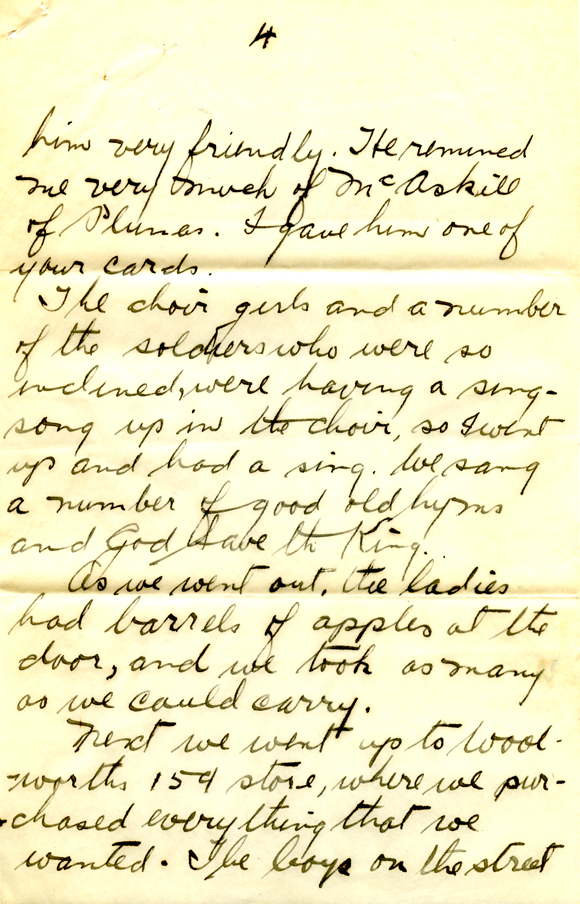 4
him very friendly. He remined
me very much of McAskill
of Plumas. I gave him one of
your cards.
The choir girls and a number
of the soldiers who were so
inclined, were having a sing-
song up in the choir, so I went
up and had a sing. We sang
a number of good old hyms
and God Save th King.
As we went out, the ladies
had barrels of apples at the
door, and we took as many
as we could carry.
Next we went up to Wool-
worths 15¢ store, where we pur-
chased everything that we
wanted. The boys on the street